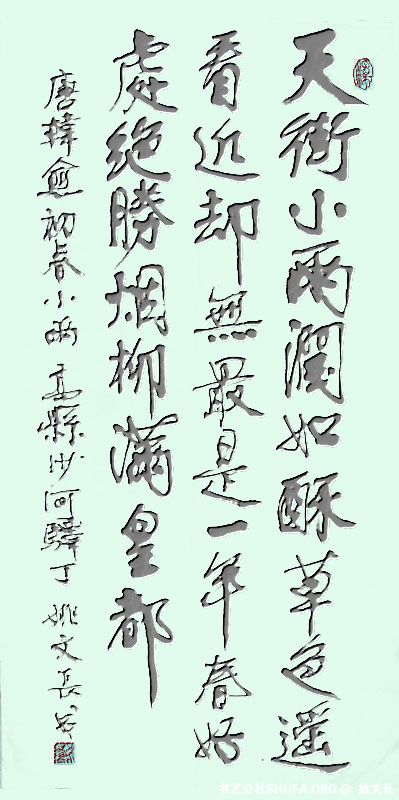 天街小雨潤如酥草色遥
看近却無最是一年春好
處絶勝烟柳滿皇都
唐韓愈初春小雨 縣沙河驛丁 姚文長书
书艺公社SHUFA.ORG @ 姚文长